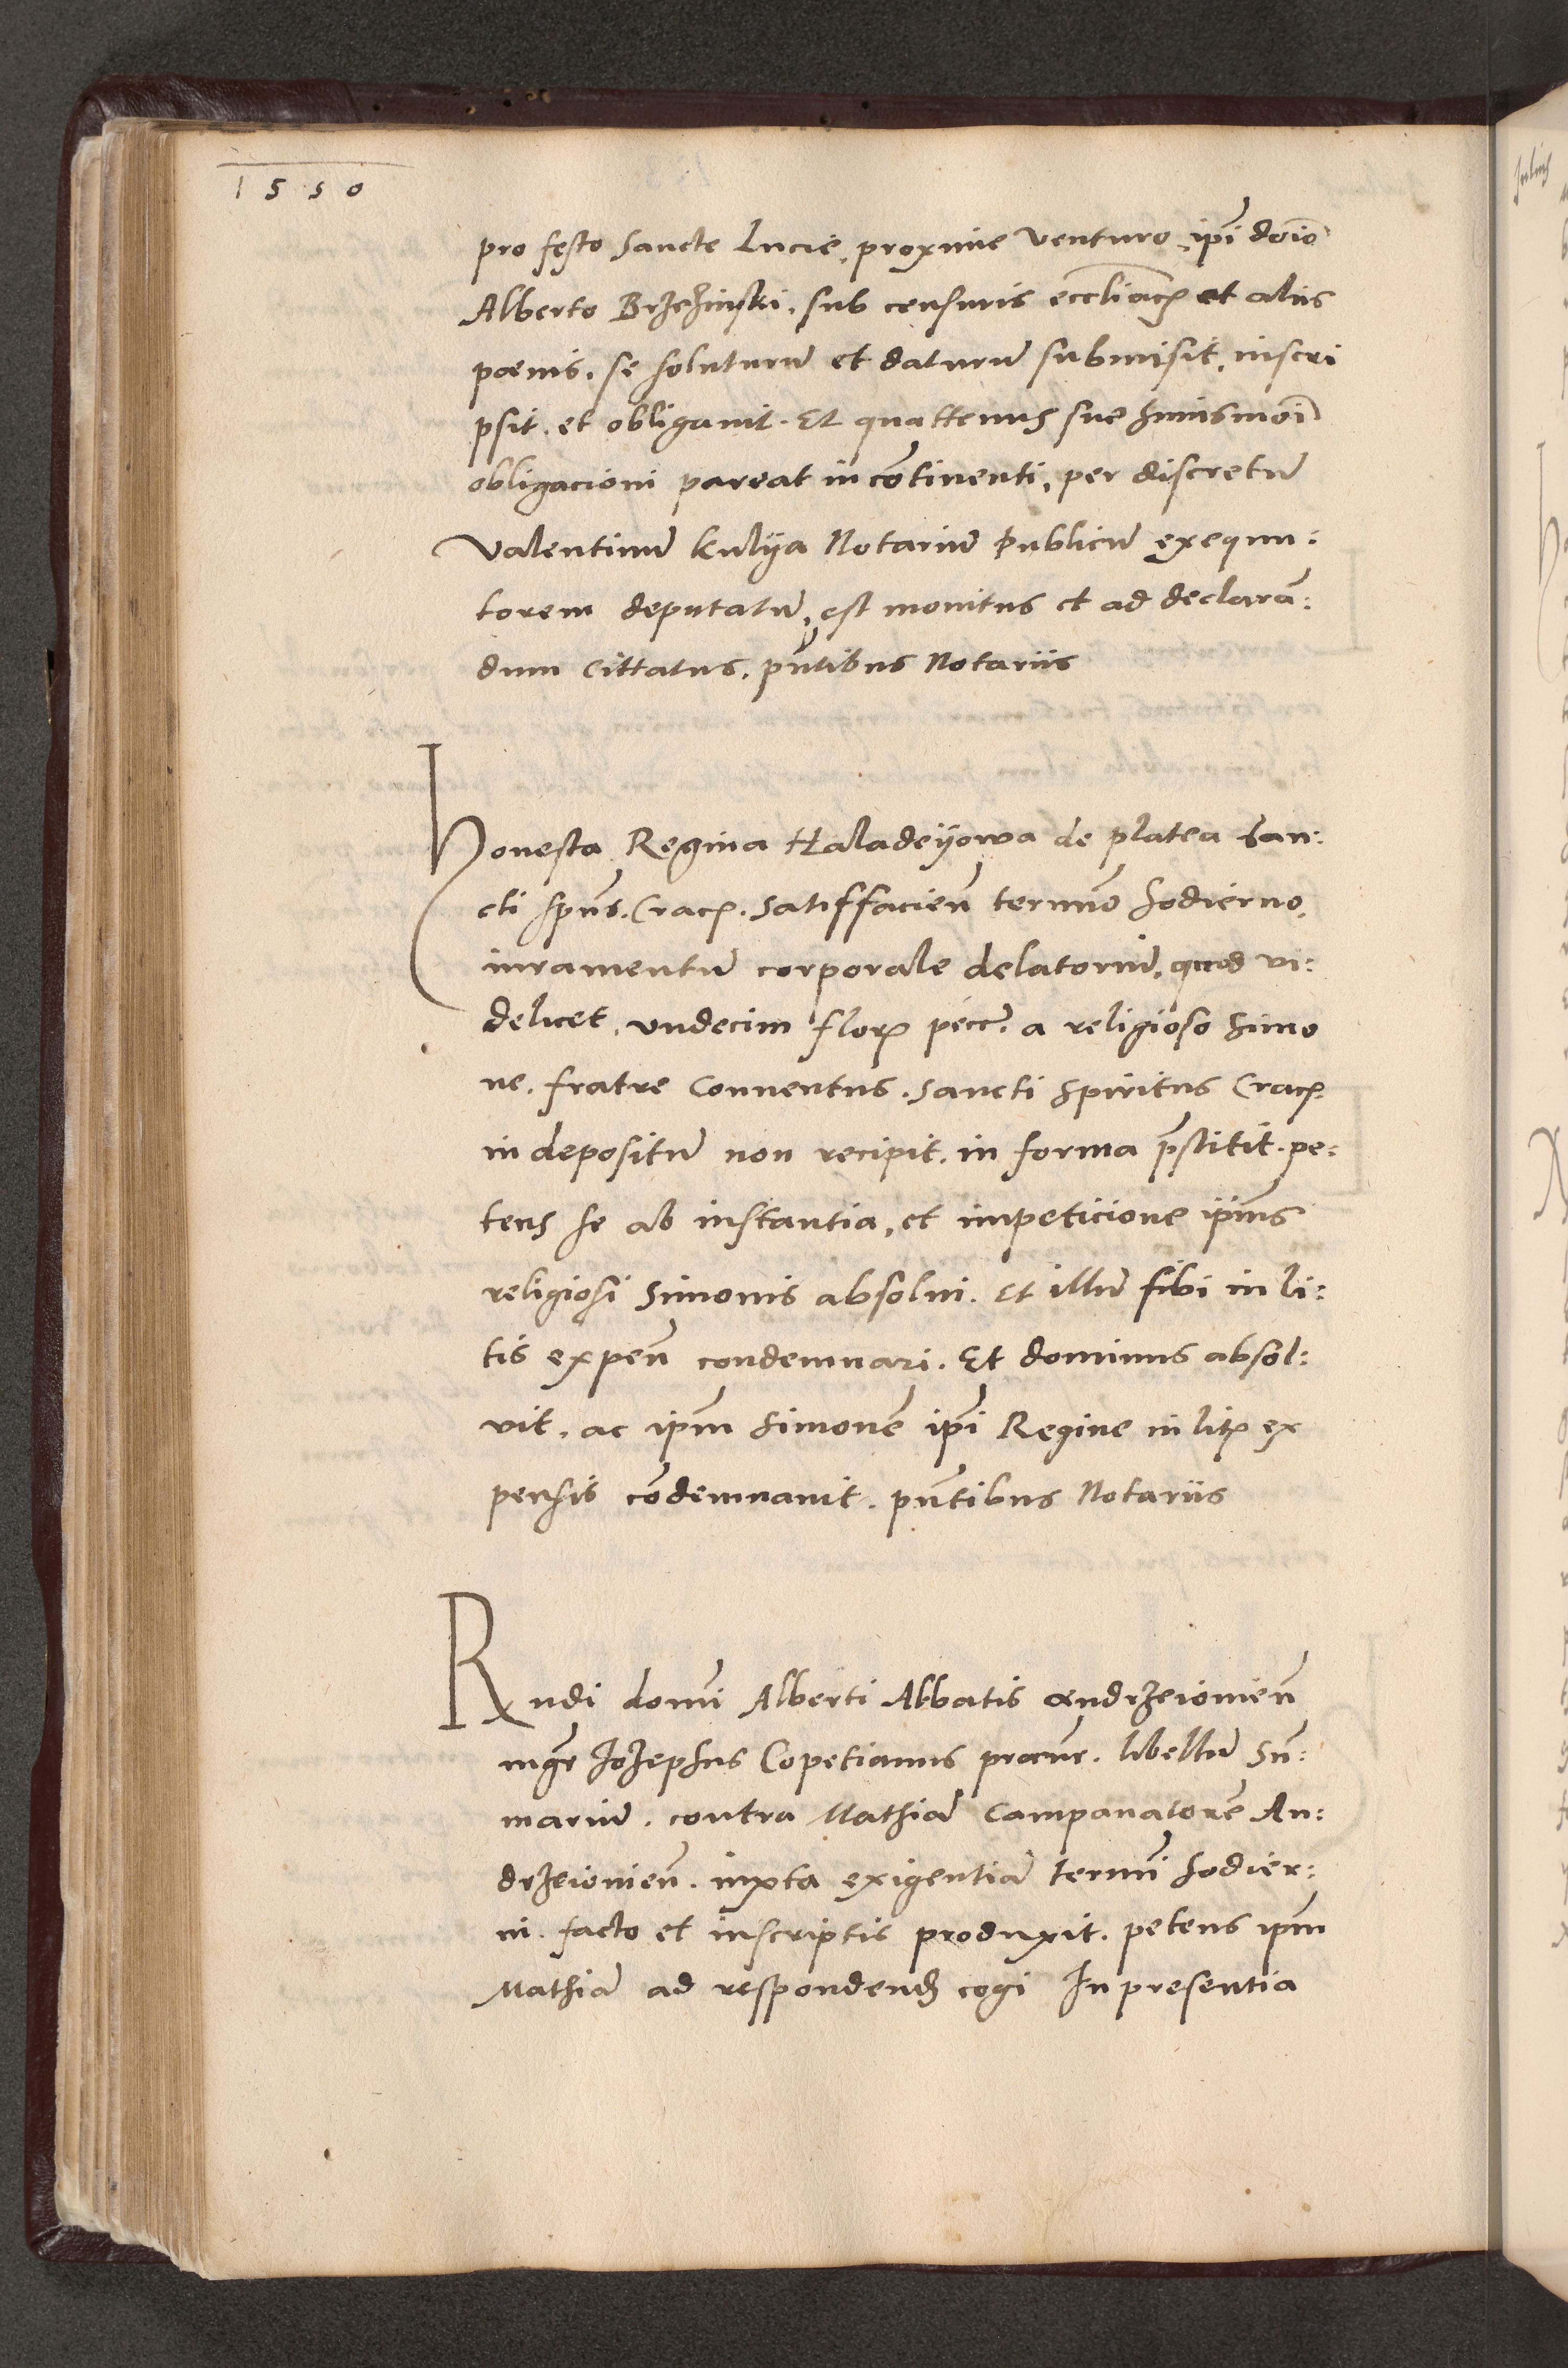 1550
pro festo Sancte Lucie, proxime venturo, ip̃i dõio
Alberto Brzezinski. sub censuris eccl̃iacꝫ et aliis
poenis. se soluturũ et daturũ submisit, inscri
psit. et obligauit. Et quattenus sue huiusmõi
obligacioni pareat in cõtinenti, per discretũ
Valentinũ Kulya Notariũ publicũ exequu:
torem deputatũ, est monitus et ad declarã:
dum cittatus. pñtibus Notariis
Honesta Regina Haladeÿowa de platea San:
cti Spũs. Cracꝫ. Satisffacieñ termĩo hodierno,
iuramentũ corporale delatoriũ, quod vi:
delicet. vndecim florꝫ pecc̃. a religioso Simo
ne. fratre Conuentus. Sancti Spiritus Cracꝫ
in depositũ non recipit. in forma p̃stitit. pe:
tens se ab instantia, et impeticione ip̃ius
religiosi Simonis absolui. Et illũ sibi in li:
tis expeñ condemnari. Et dominus absol:
vit. ac ip̃m Simonẽ ip̃i Regine in litꝫ ex
pensis cõdemnauit. pñtibus Notariis
Rndi domĩ Alberti Abbatis Andrzeiouieñ
mgr̃ Jozephus Copetianus procur̃. libellũ Sũ:
mariũ. contra Mathiã Campanatorẽ An:
drzeiouieñ. iuxta exigentiã termĩ hodier:
ni. facto et inscriptis produxit. petens ip̃m
Mathiã ad respondendꝫ cogi In presentia
Julius